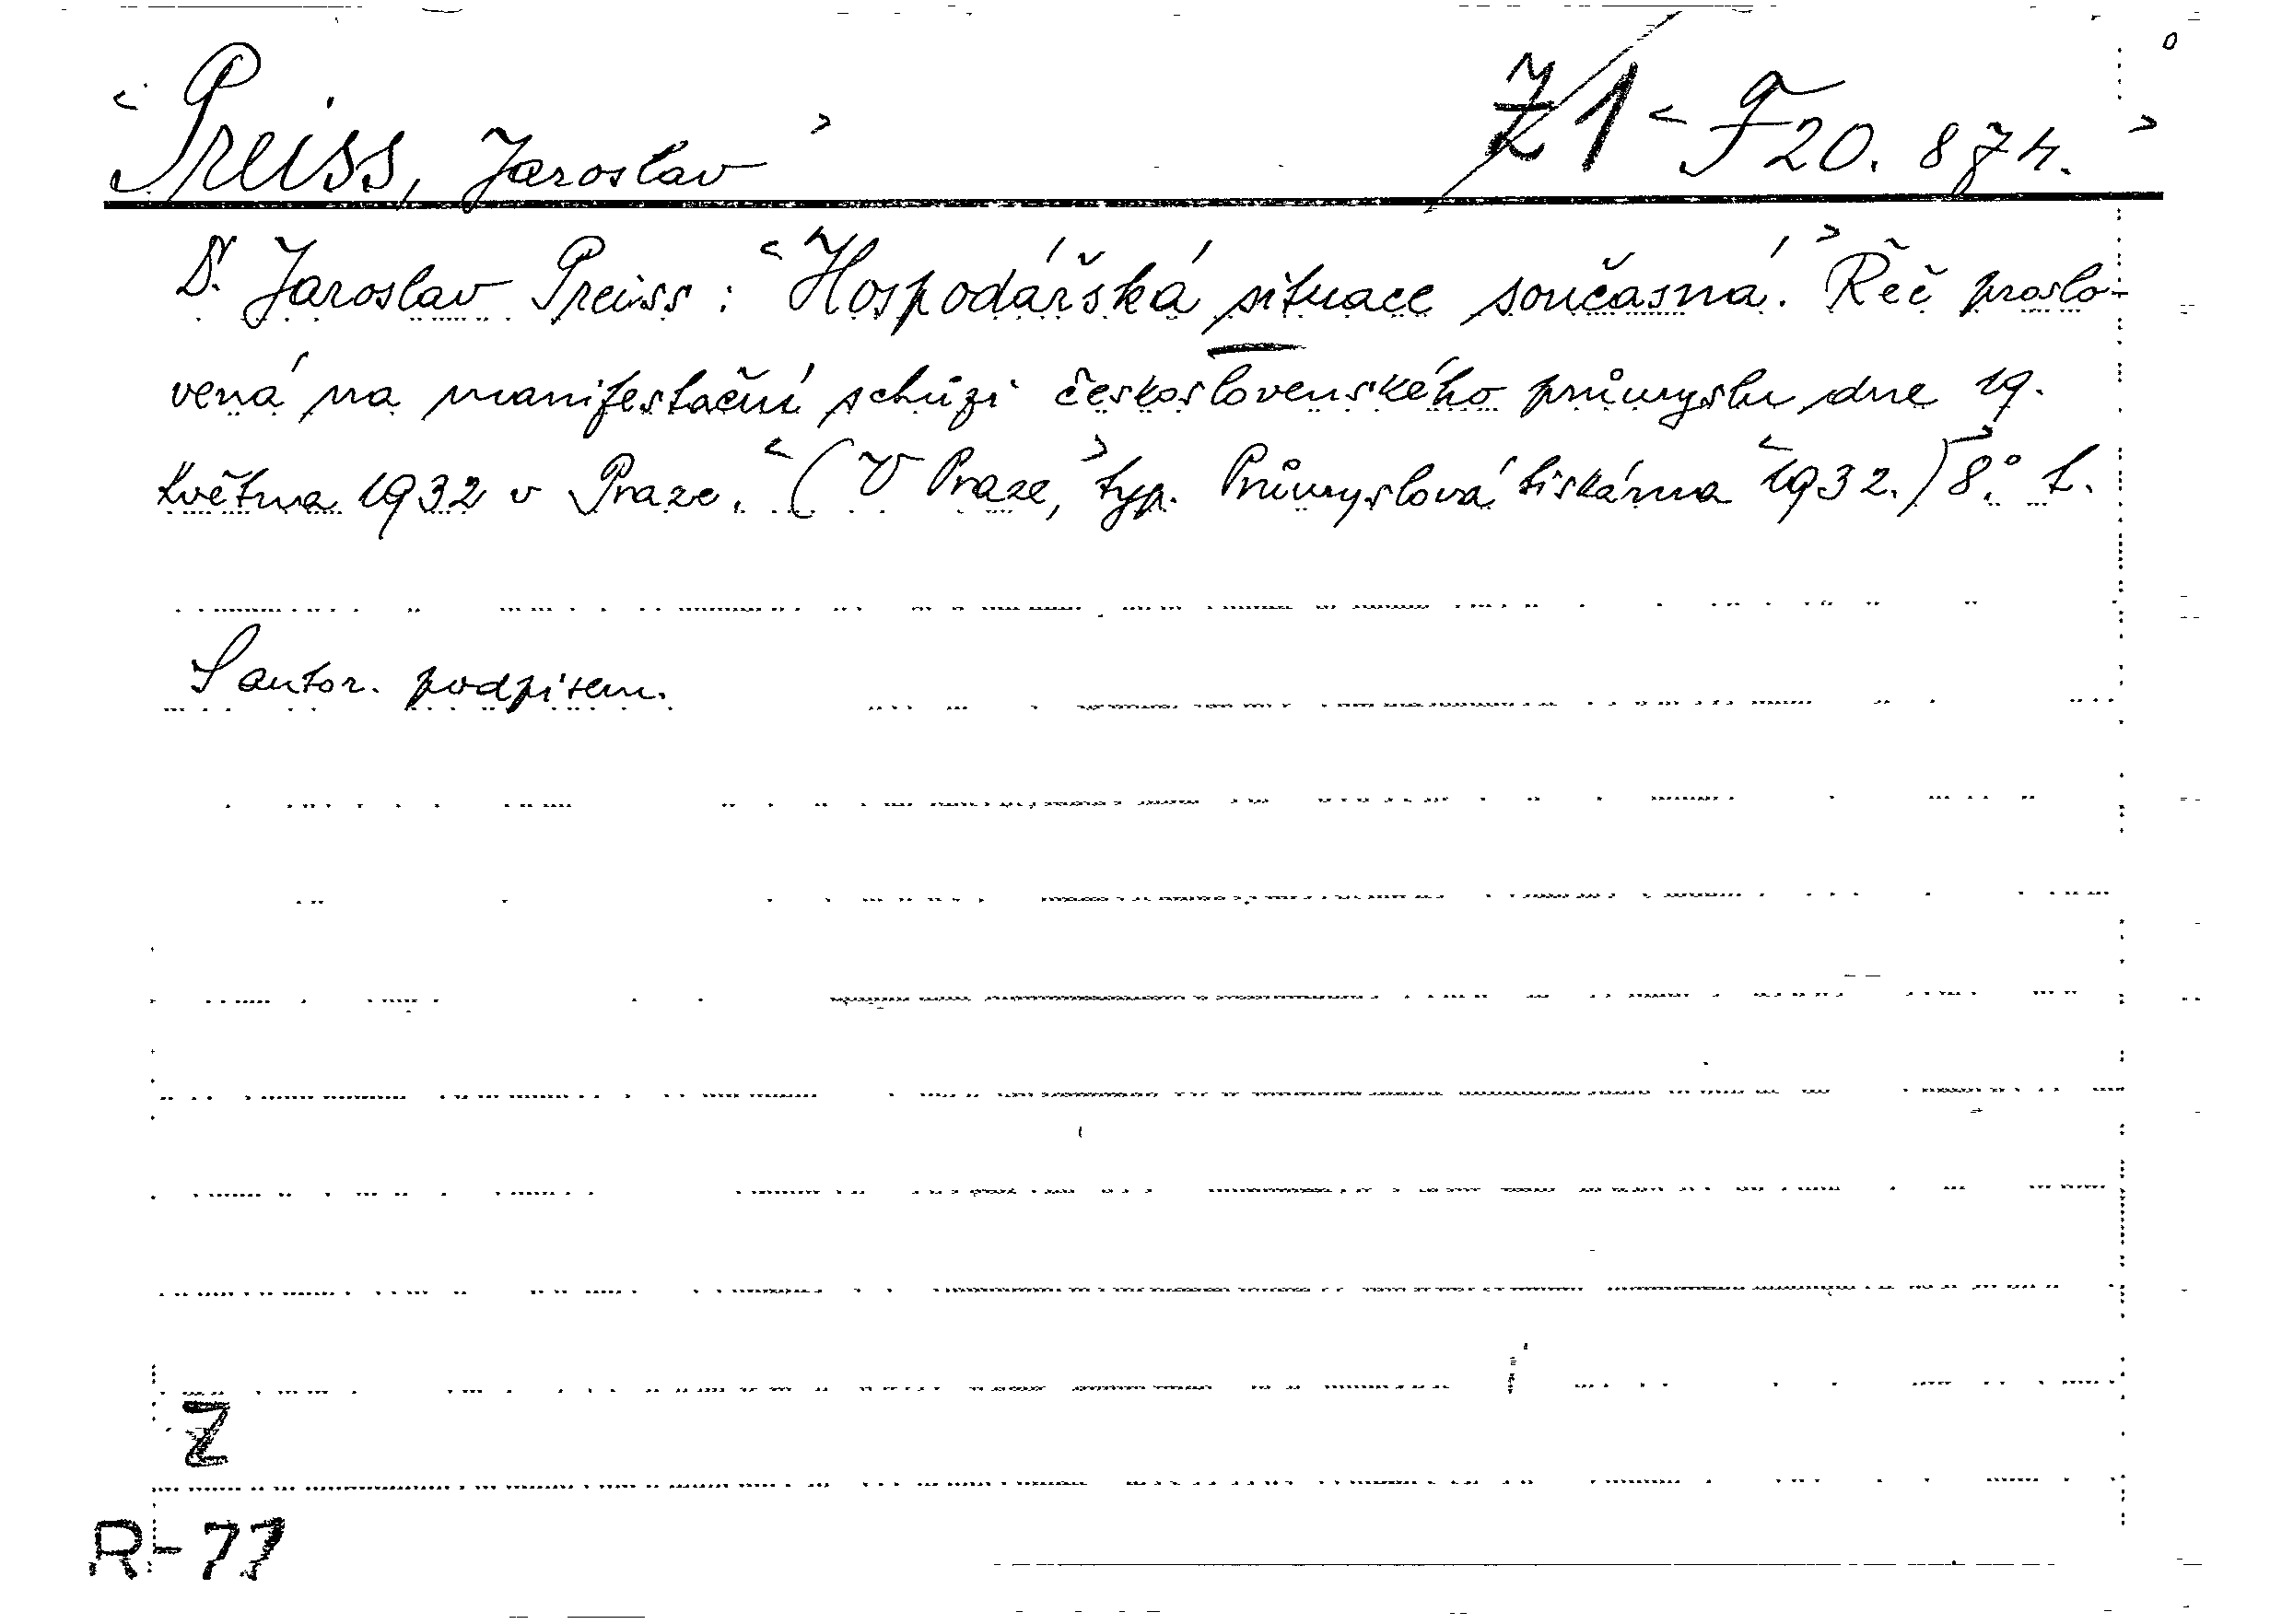 Preiss, Jaroslav Z1 F 20.874.
Dr. Jaroslav Preiss: Hospodářská situace současná. Řeč proslo-
vená na manifestační schůzi československého průmyslu dne 19.
května 1932 v Praze. (V Praze, typ. Průmyslová tiskárna 1932.) 8°. L.
S autor. podpisem.
Z
R-77